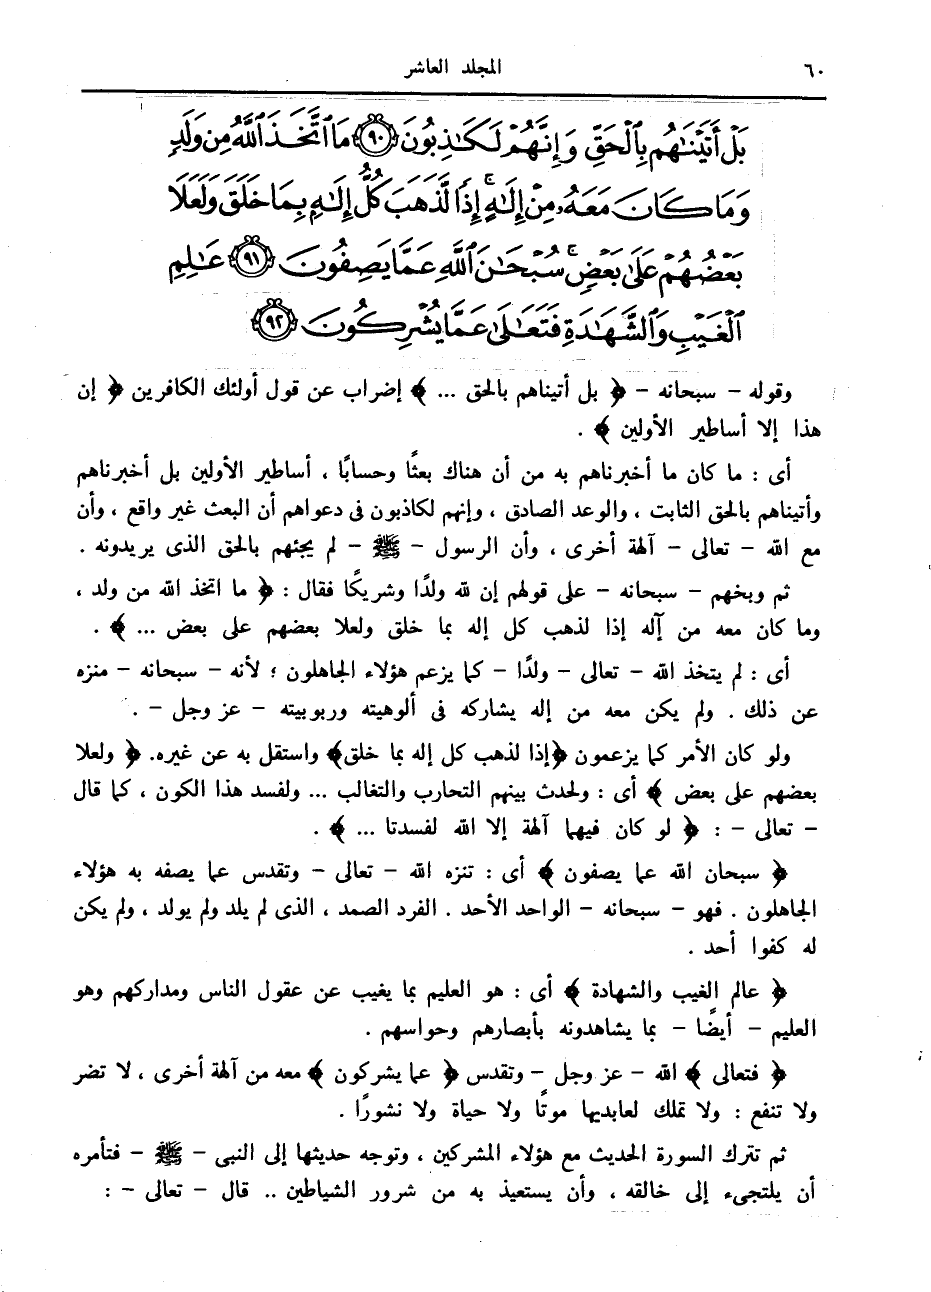 ٦٠
المجلد العاشر
بَلْ أَتَيْنَٰهُم بِٱلْحَقِّ وَإِنَّهُمْ لَكَٰذِبُونَ ٩٠ مَا ٱتَّخَذَ ٱللَّهُ مِن وَلَدٍ
وَمَا كَانَ مَعَهُۥ مِنْ إِلَٰهٍ ۚ إِذًا لَّذَهَبَ كُلُّ إِلَٰهٍۭ بِمَا خَلَقَ وَلَعَلَا
بَعْضُهُمْ عَلَىٰ بَعْضٍ ۚ سُبْحَٰنَ ٱللَّهِ عَمَّا يَصِفُونَ ٩١ عَٰلِمِ
ٱلْغَيْبِ وَٱلشَّهَٰدَةِ فَتَعَٰلَىٰ عَمَّا يُشْرِكُونَ ٩٢
وقوله - سبحانه - ﴿ بل أتيناهم بالحق ... ﴾ إضراب عن قول أولئك الكافرين ﴿ إن
هذا إلا أساطير الأولين ﴾ .
أى : ما كان ما أخبرناهم به من أن هناك بعثًا وحسابًا ، أساطير الأولين بل أخبرناهم
وأتيناهم بالحق الثابت ، والوعد الصادق ، وإنهم لكاذبون فى دعواهم أن البعث غير واقع ، وأن
مع الله - تعالى - آلهة أخرى ، وأن الرسول - ﷺ - لم يجئهم بالحق الذى يريدونه .
ثم وبخهم - سبحانه - على قولهم إن لله ولدًا وشريكًا فقال : ﴿ ما اتخذ الله من ولد ،
وما كان معه من آله إذا لذهب كل إله بما خلق ولعلا بعضهم على بعض ... ﴾ .
أى : لم يتخذ الله - تعالى - ولدًا - كما يزعم هؤلاء الجاهلون ؛ لأنه - سبحانه - منزه
عن ذلك . ولم يكن معه من إله يشاركه فى ألوهيته وربوبيته - عز وجل - .
ولو كان الأمر كما يزعمون ﴿إذا لذهب كل إله بما خلق﴾ واستقل به عن غيره. ﴿ ولعلا
بعضهم على بعض ﴾ أى : ولحدث بينهم التحارب والتغالب ... ولفسد هذا الكون ، كما قال
- تعالى - : ﴿ لو كان فيهما آلهة إلا الله لفسدتا ... ﴾ .
﴿ سبحان الله عما يصفون ﴾ أى : تنزه الله - تعالى - وتقدس عما يصفه به هؤلاء
الجاهلون . فهو - سبحانه - الواحد الأحد . الفرد الصمد ، الذى لم يلد ولم يولد ، ولم يكن
له كفوا أحد .
﴿ عالم الغيب والشهادة ﴾ أى : هو العليم بما يغيب عن عقول الناس ومداركهم وهو
العليم - أيضًا - بما يشاهدونه بأبصارهم وحواسهم .
﴿ فتعالى ﴾ الله - عز وجل - وتقدس ﴿ عما يشركون ﴾ معه من آلهة أخرى ، لا تضر
ولا تنفع : ولا تملك لعابديها موتًا ولا حياة ولا نشورًا .
ثم تترك السورة الحديث مع هؤلاء المشركين ، وتوجه حديثها إلى النبى - ﷺ - فتأمره
أن يلتجىء إلى خالقه ، وأن يستعيذ به من شرور الشياطين .. قال - تعالى - :